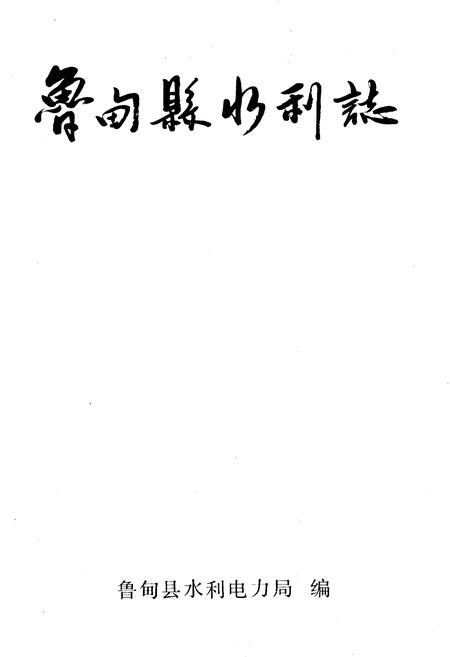 魯甸縣水利誌
鲁甸县水利电力局 编